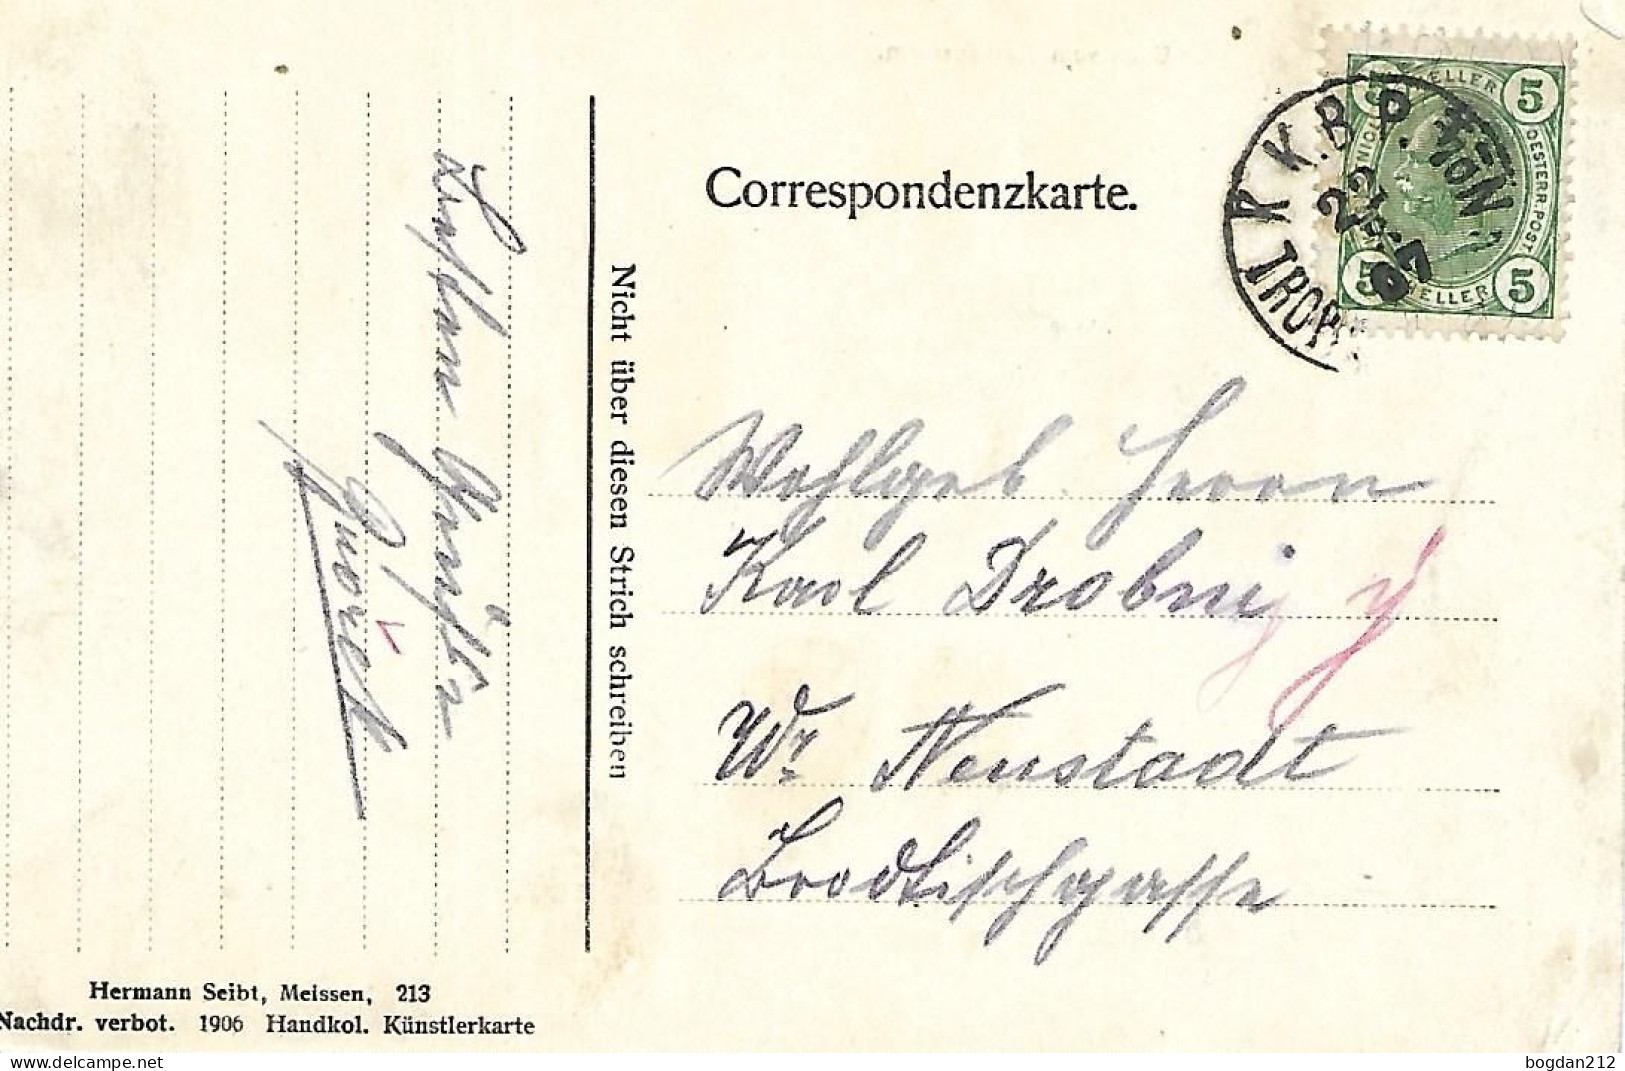 Correspondenzkarte.
5 HELLER 5
OESTERR.POST.
5 HELLER 5
K. K. B. P.
22
07
Nicht über diesen Strich schreiben
Wohlgeb. Herrn
Karl Drobnij
Wr Neustadt
Brodtischgasse
Hermann Seibt, Meissen, 213
Nachdr. verbot. 1906 Handkol. Künstlerkarte
bogdan212